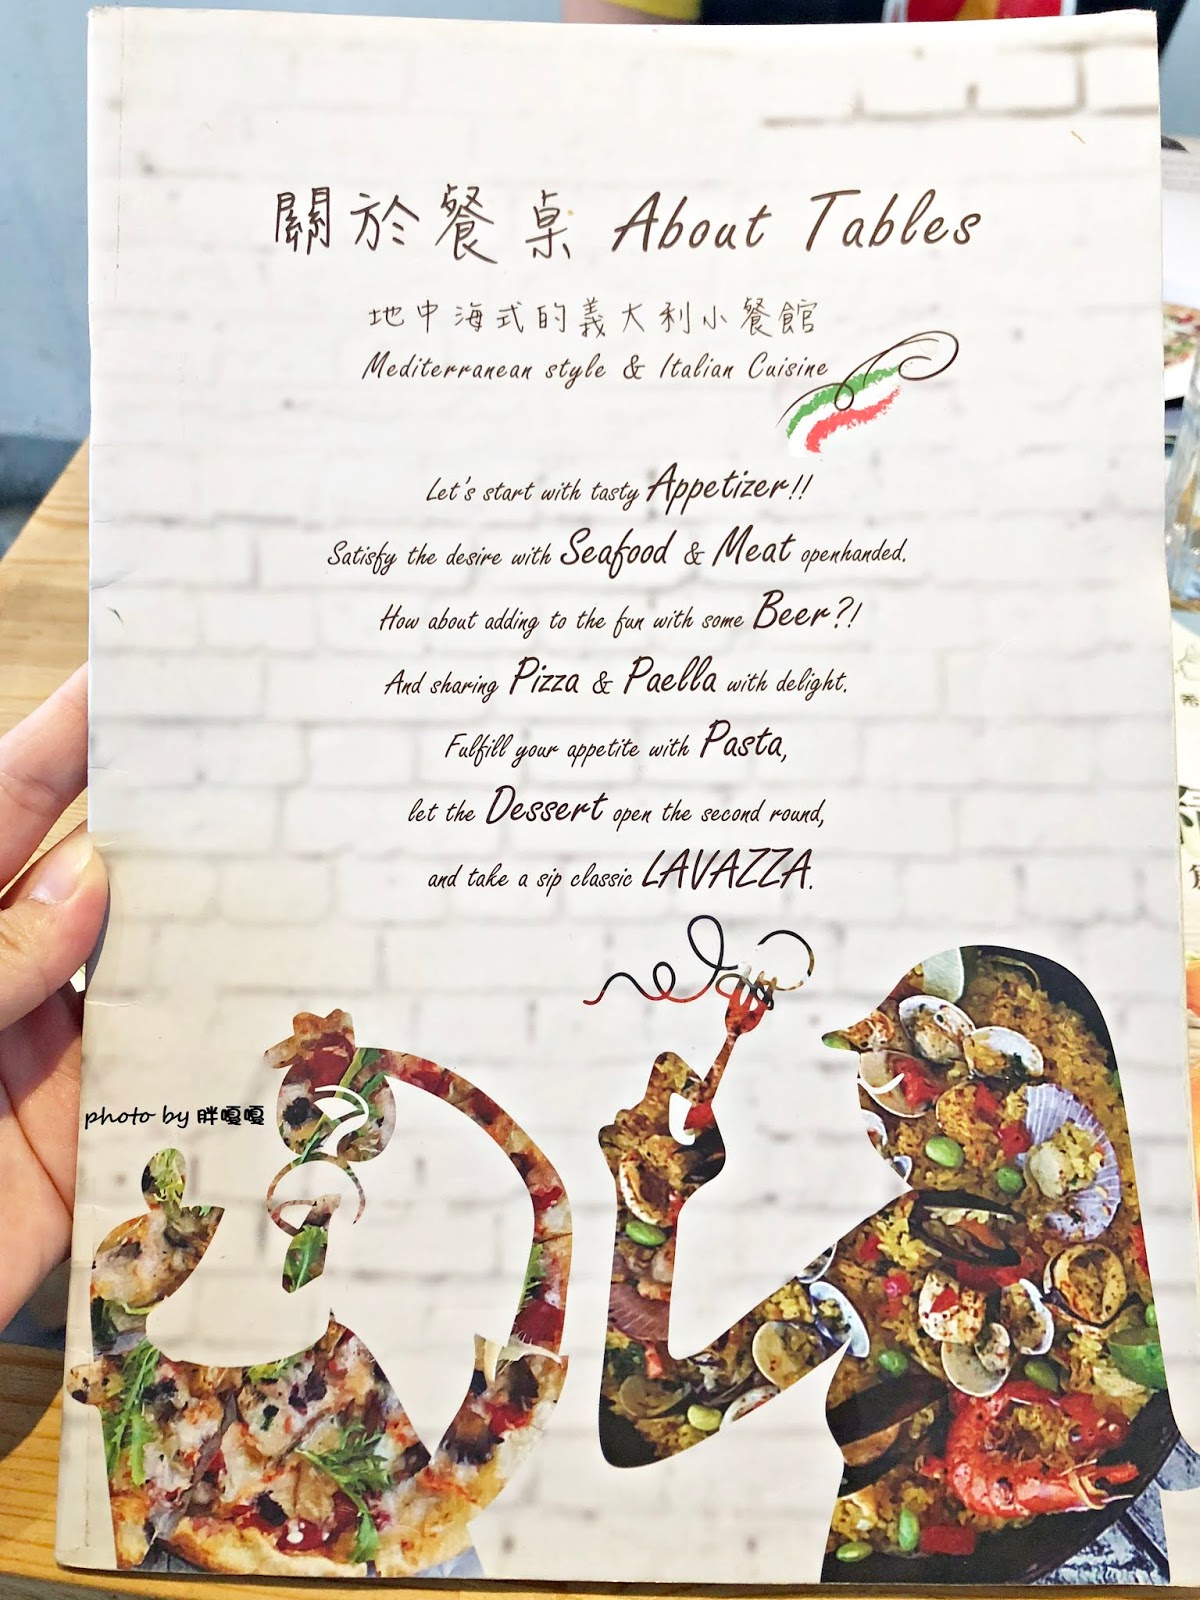 關於餐桌 About Tables
地中海式的義大利小餐館
Mediterranean style & Italian Cuisine
Let's start with tasty Appetizer!!
Satisfy the desire with Seafood & Meat openhanded.
How about adding to the fun with some Beer?!
And sharing Pizza & Paella with delight.
Fulfill your appetite with Pasta,
let the Dessert open the second round,
and take a sip classic LAVAZZA.
photo by 胖嘎嘎